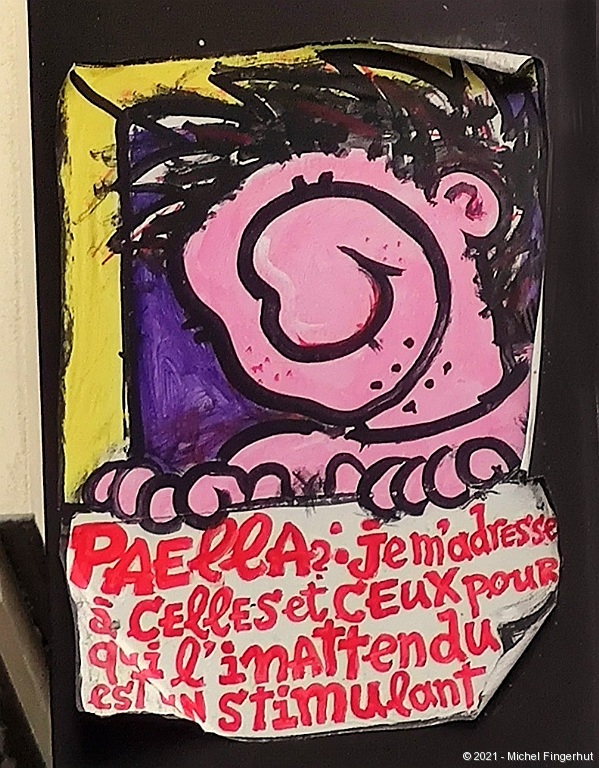 PAEllA?: je m'adresse
à CEllES et CEUX pour
qui l'inATTendu
est uN stimulant
© 2021 - Michel Fingerhut